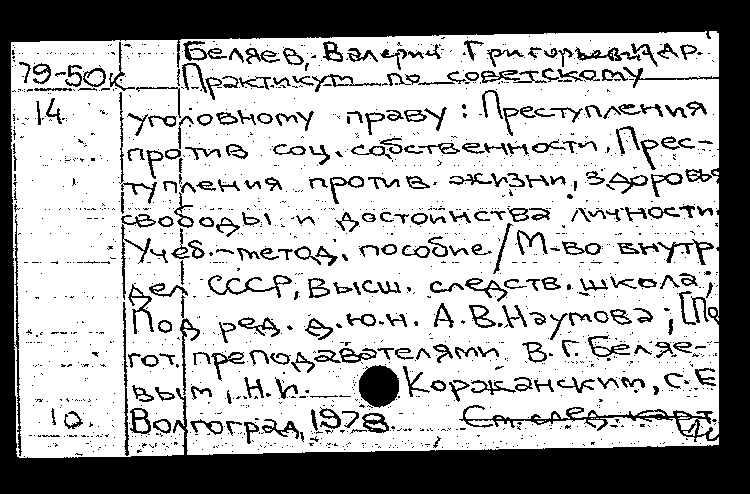 Беляев, Валерий Григорьевич и др.
79-50к Практикум по советскому
14 уголовному праву: Преступления
против соц. собственности. Прес-
тупления против жизни, здоровья
свободы и достоинства личности.
Учеб.-метод. пособие / М-во внутр.
дел СССР, Высш. следств. школа;
Под ред. д.ю.н. А.В. Наумова; [По
гот. преподавателями В.Г. Беляе-
вым, Н.И. Коржанским, С.Е
10. Волгоград, 1978. См. след. карт.